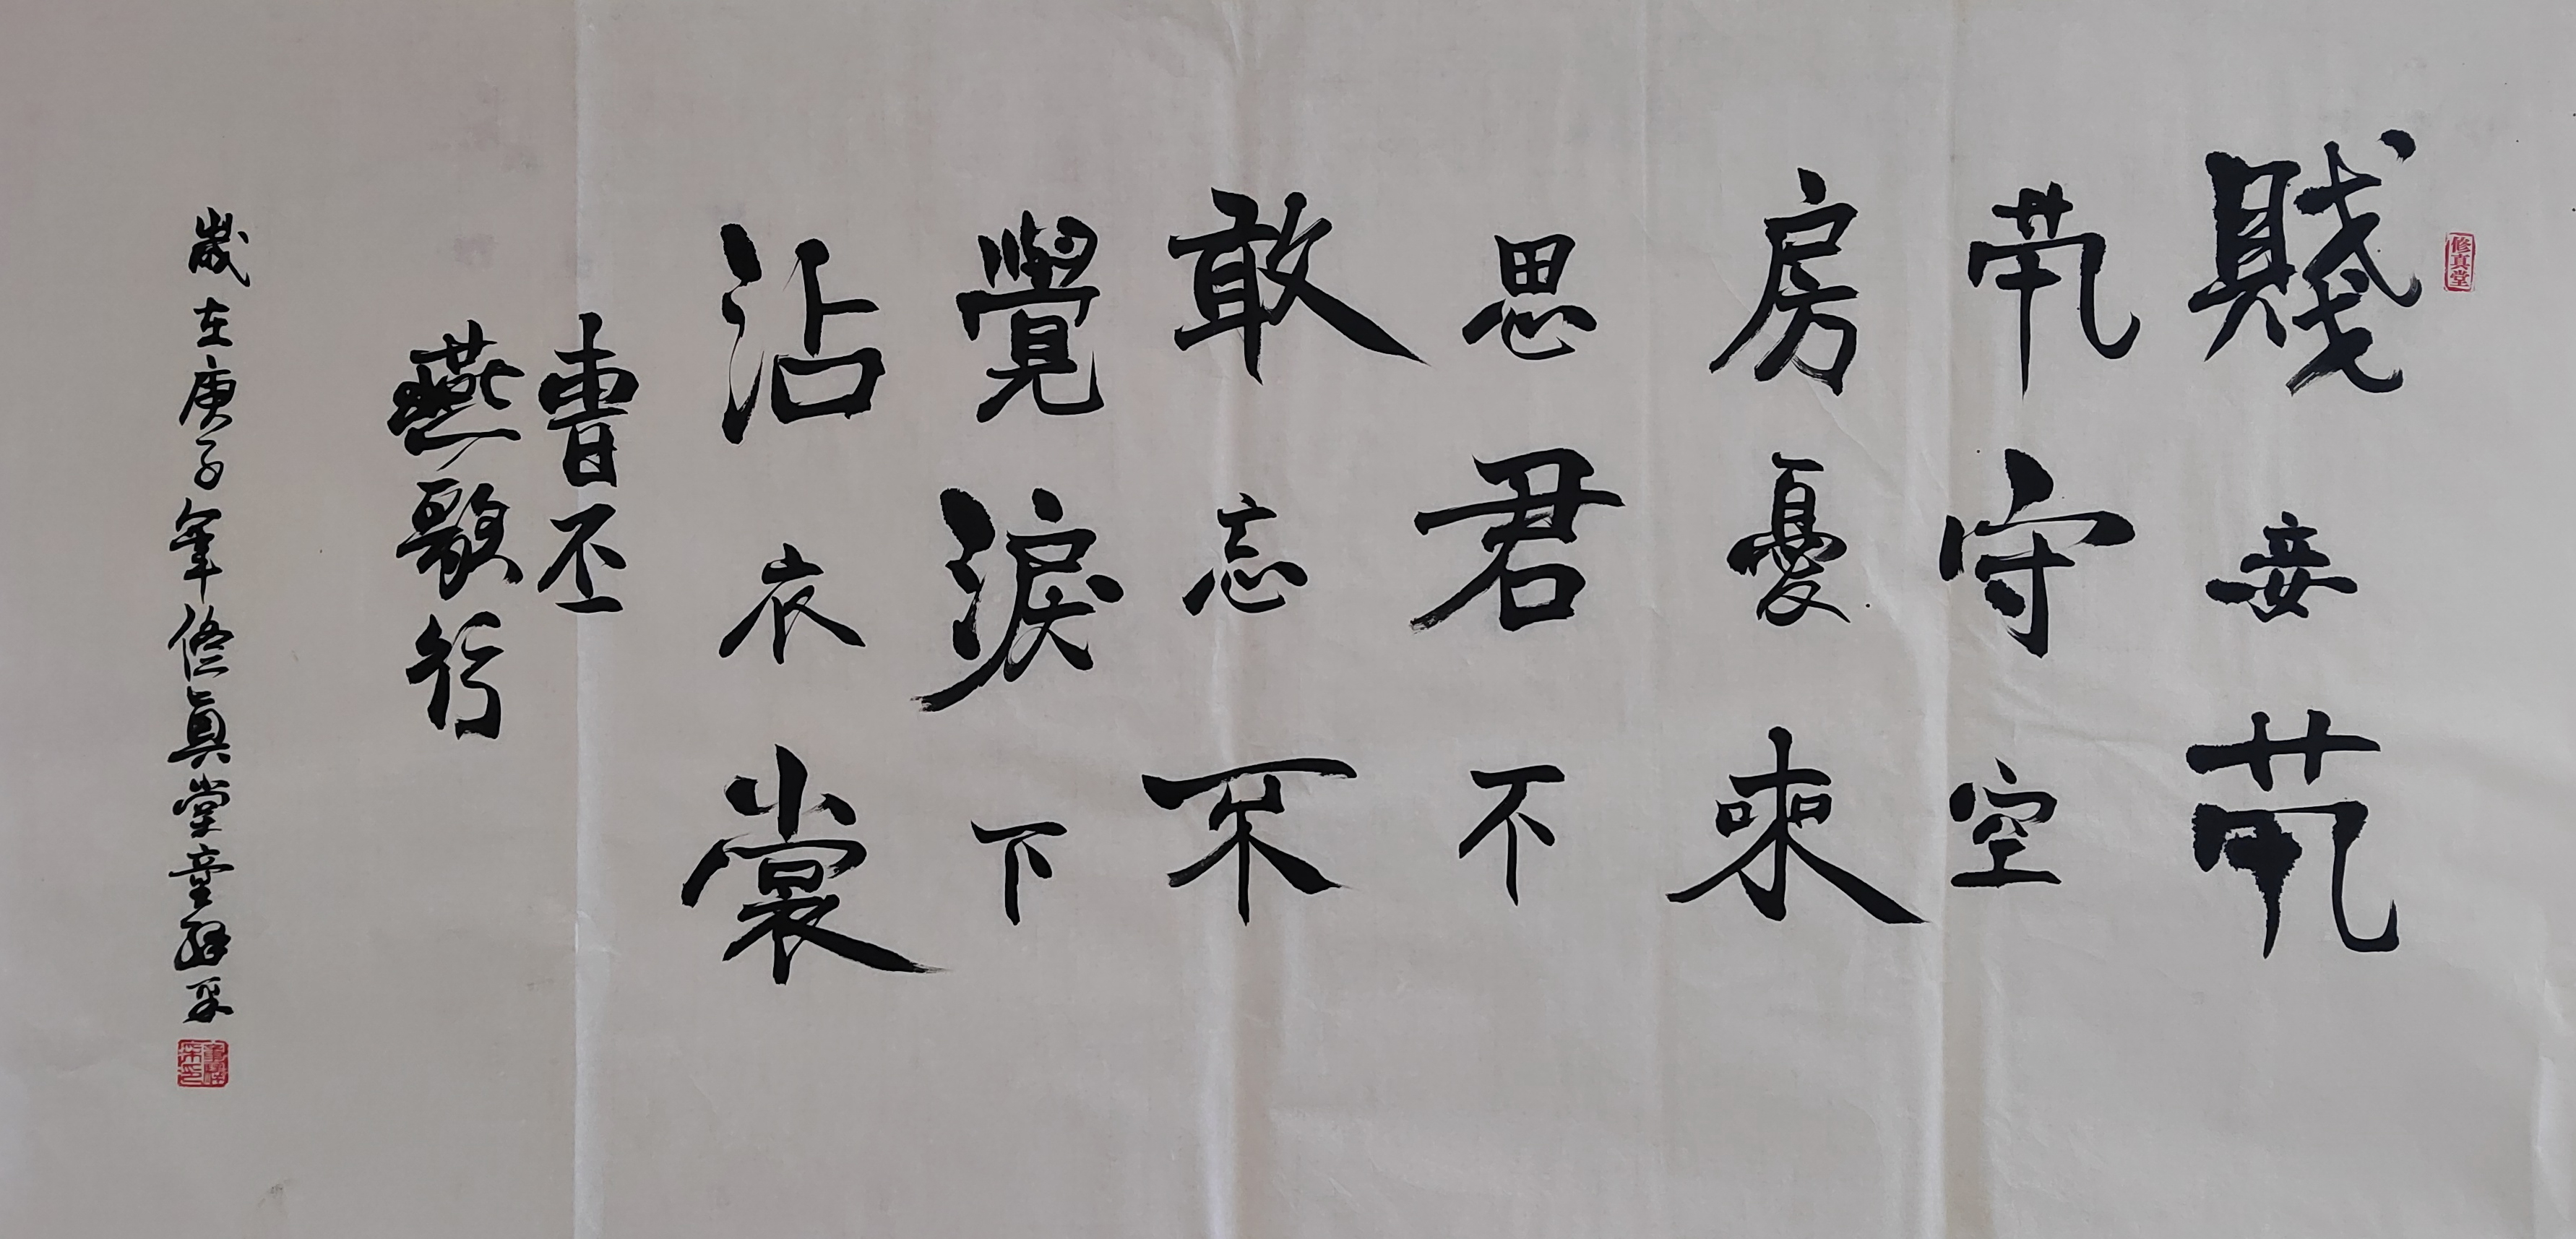 修真堂
賤妾茕
茕守空
房憂來
思君不
敢忘不
覺淚下
沾衣裳
曹丕
燕歌行
歲在庚子年修真堂童